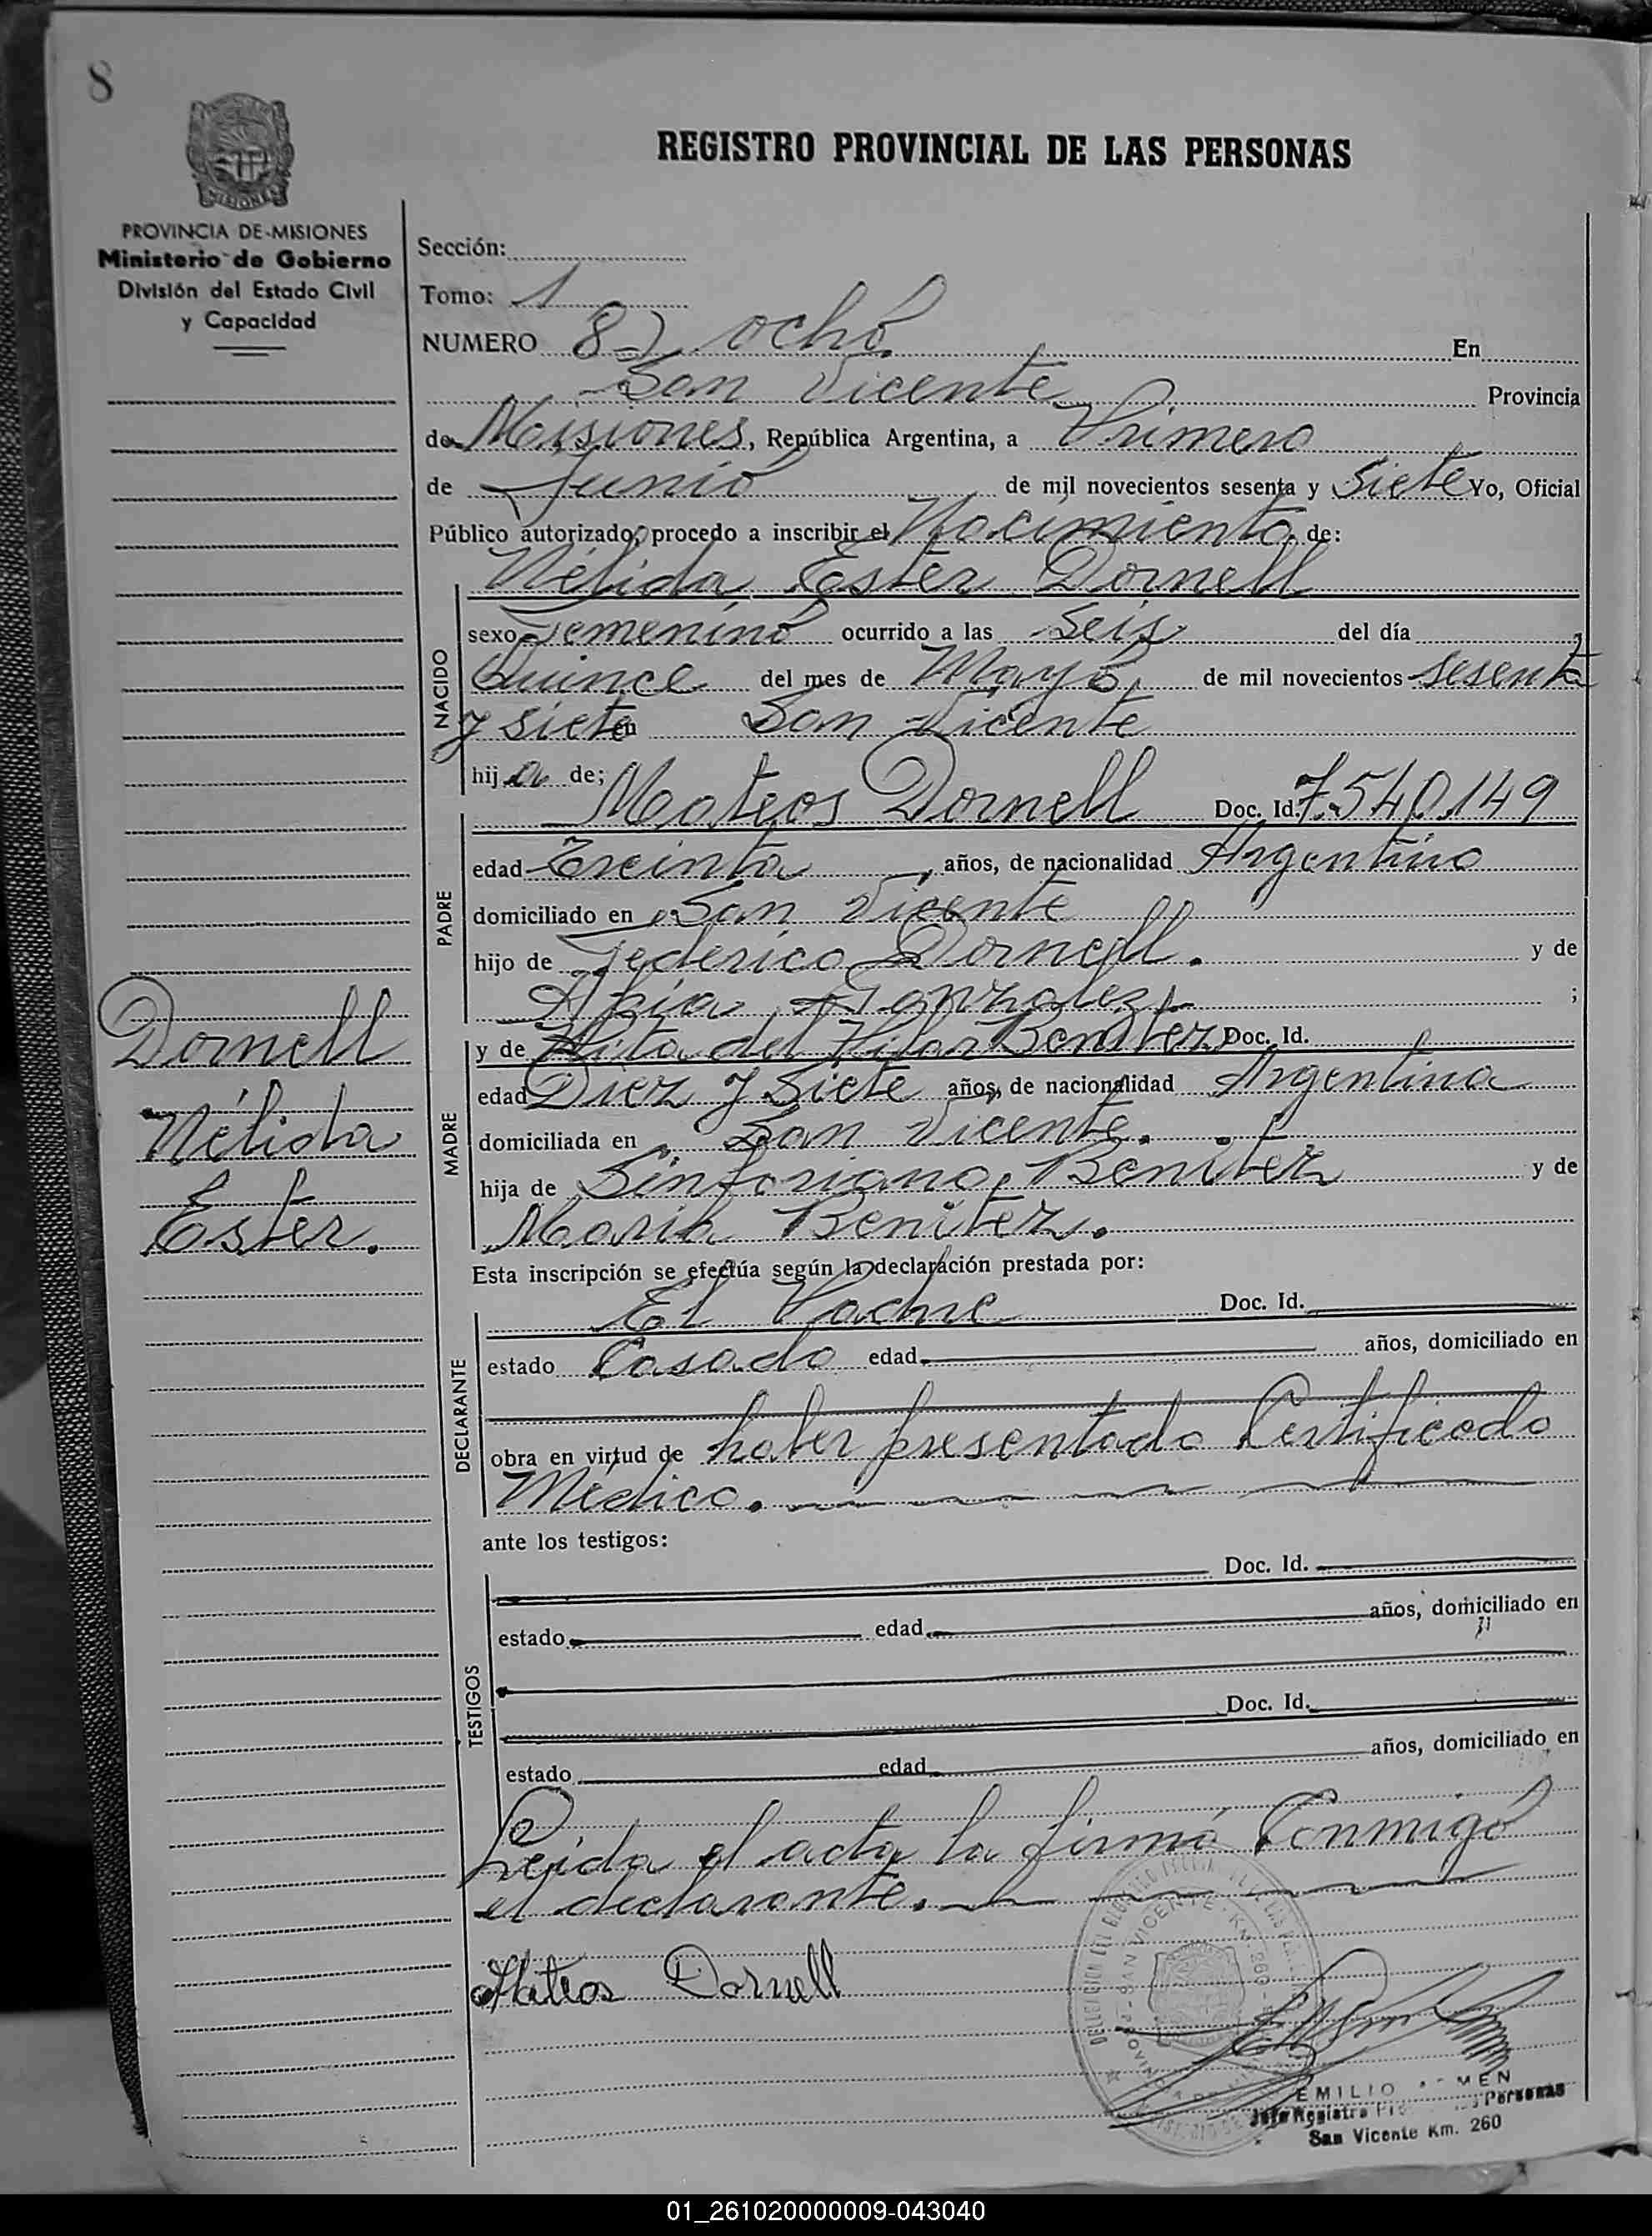 8
REGISTRO PROVINCIAL DE LAS PERSONAS
MISIONES
PROVINCIA DE MISIONES
Ministerio de Gobierno
División del Estado Civil
y Capacidad
Sección:
Tomo: 1
NUMERO 8-) ocho En
San Vicente Provincia
de Misiones, República Argentina, a Primero
de Junio de mil novecientos sesenta y Siete Yo, Oficial
Público autorizado, procedo a inscribir el Nacimiento de:
Nélida Ester Dornell
NACIDO
sexo Femenino ocurrido a las Seis del día
Quince del mes de Mayo, de mil novecientos sesenta
y siete en San Vicente
hija de;
PADRE
Mateos Dornell Doc. Id. 7.540.149
edad Treinta, años, de nacionalidad Argentino
domiciliado en San Vicente
hijo de Federico Dornell. y de
Gonzalez ;
MADRE
y de Rita del Pilar Benitez Doc. Id.
edad Diez y Siete años, de nacionalidad Argentina
domiciliada en San Vicente.
hija de Sinforiano Benitez y de
Maria Benitez.
Dornell
Nélida
Ester.
Esta inscripción se efectúa según la declaración prestada por:
DECLARANTE
El Padre Doc. Id.
estado Casado edad años, domiciliado en
obra en virtud de haber presentado Certificado
Médico.
ante los testigos:
TESTIGOS
Doc. Id.
estado edad años, domiciliado en
Doc. Id.
estado edad años, domiciliado en
Leida el acta la firma Conmigo
el declarante.
Mateos Dornell
SAN VICENTE - KM 260
EMILIO
Jefe Registro Personas
San Vicente Km. 260
01_261020000009-043040